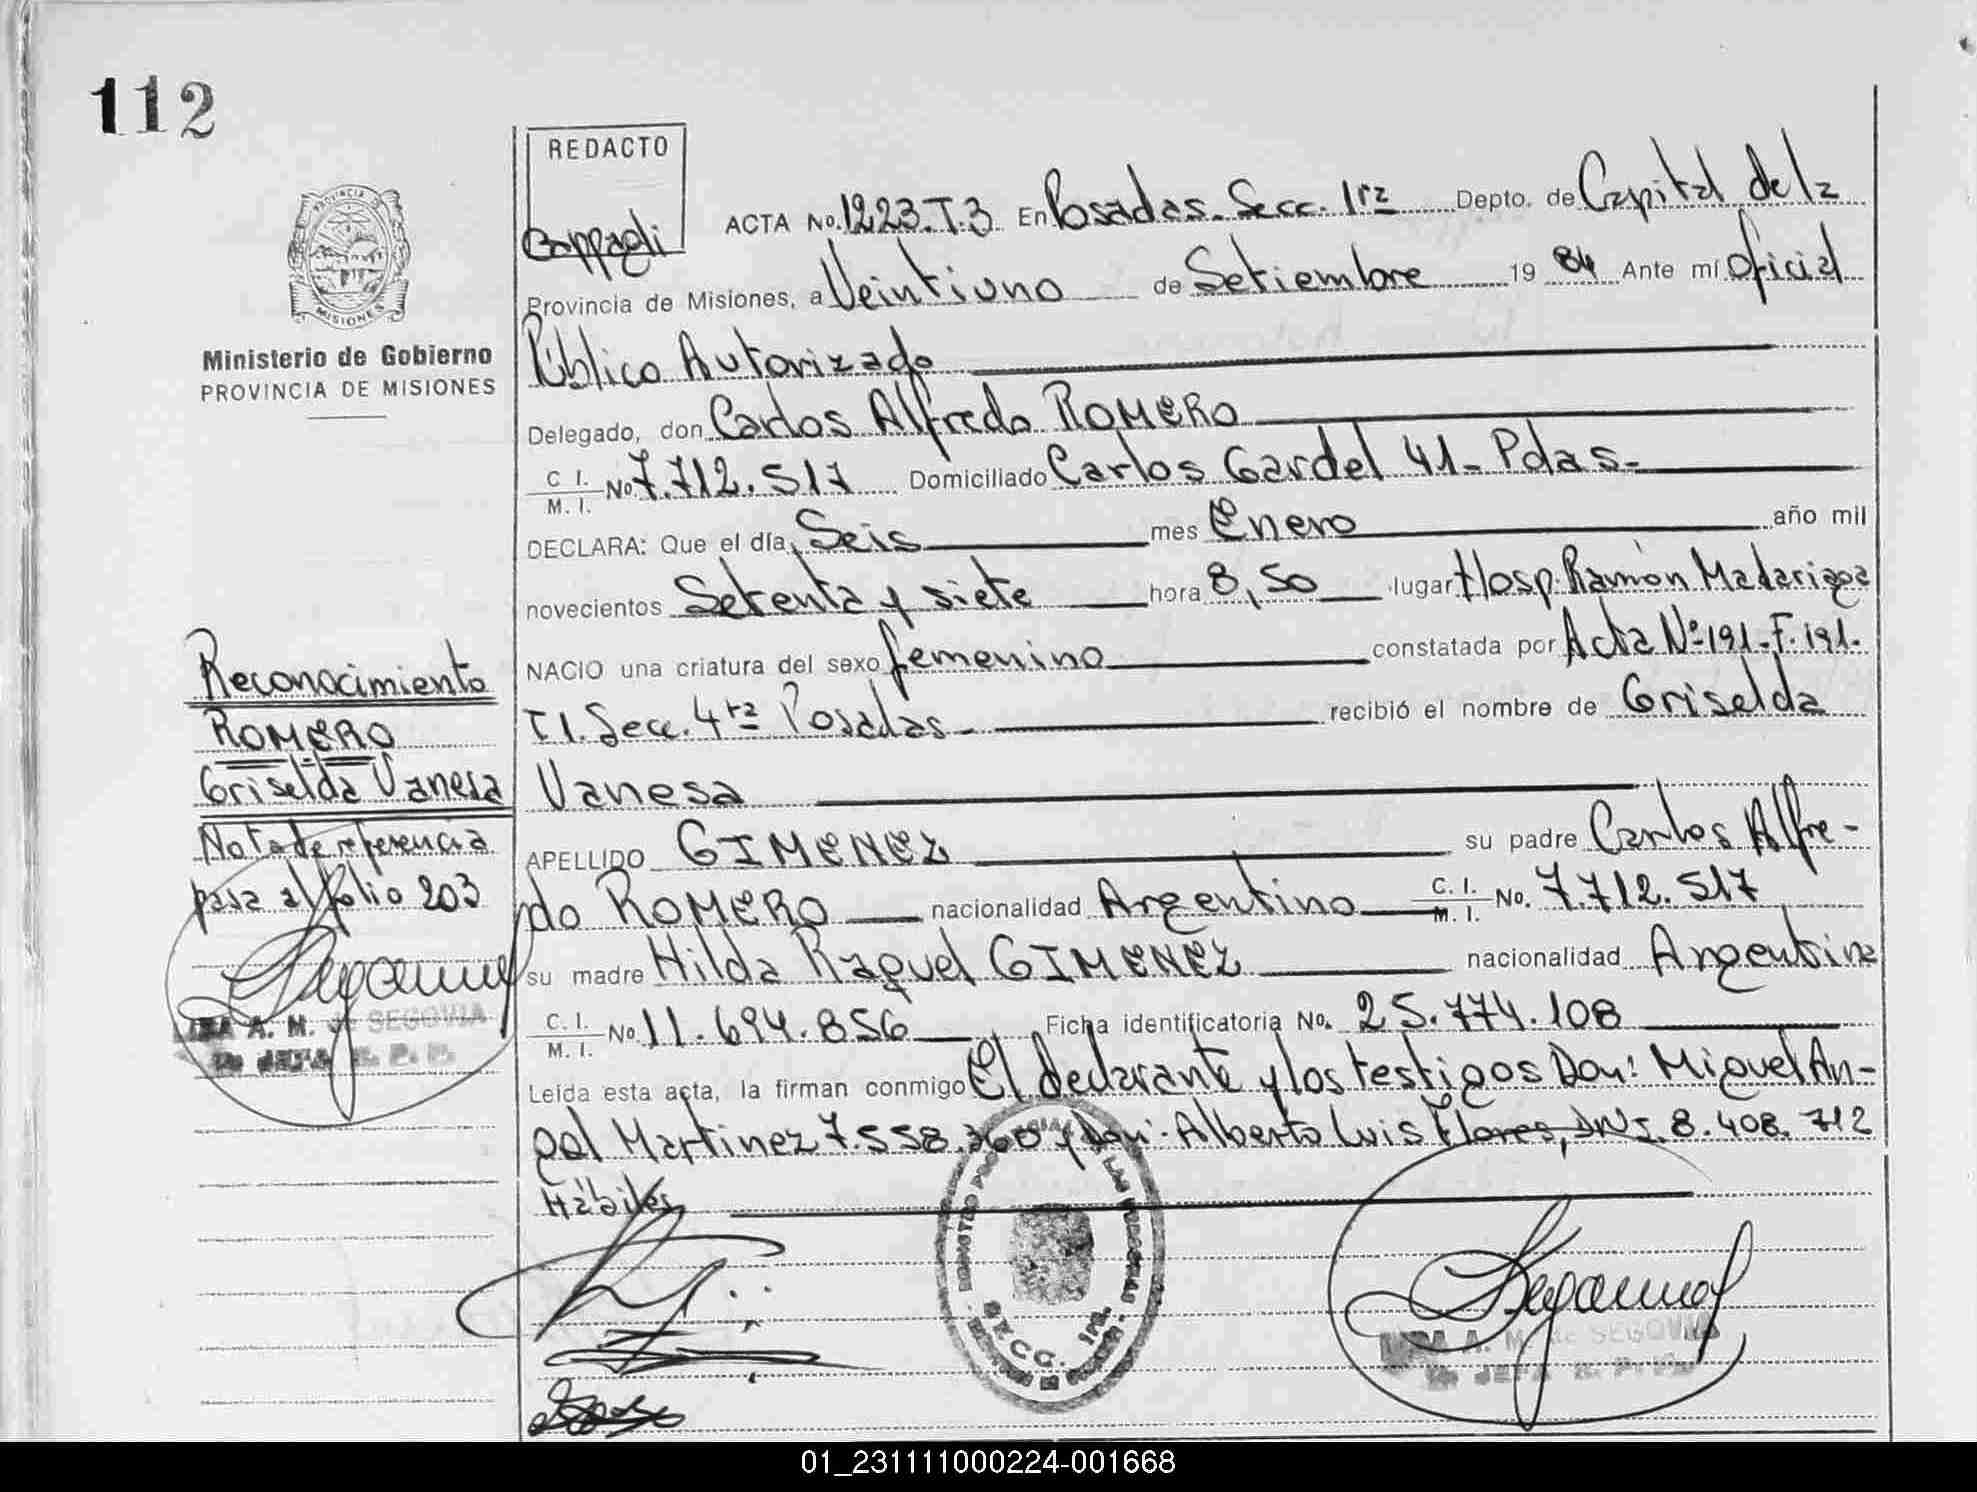 112
REDACTO
Cappagli
ACTA No. 1223.T.3 En Posadas. Secc. 1ra Depto. de Capital de la
Provincia de Misiones, a Veintiuno de Setiembre 19 84 Ante mí Oficial
PROVINCIA DE
MISIONES
Ministerio de Gobierno
PROVINCIA DE MISIONES
Público Autorizado
Delegado, don Carlos Alfredo ROMERO
C. I. M. I. No 7.712.517 Domiciliado Carlos Gardel 41- Pdas-
DECLARA: Que el día Seis mes Enero año mil
novecientos Setenta y siete hora 8,50 lugar Hosp. Ramón Madariaga
NACIO una criatura del sexo femenino constatada por Acta Nº 191-F.191-
T1. Secc. 4ta Posadas- recibió el nombre de Griselda
Vanesa
APELLIDO GIMENEZ su padre Carlos Alfre-
do ROMERO nacionalidad Argentino C. I. M. I. No. 7.712.517
su madre Hilda Raquel GIMENEZ nacionalidad Argentina
C. I. M. I. No 11.694.856 Ficha identificatoria No. 25.774.108
Leída esta acta, la firman conmigo El declarante y los testigos Don: Miguel An-
gel Martinez 7.558.360 y Don: Alberto Luis Flores, DNI. 8.408.712
Hábiles
Reconocimiento
ROMERO
Griselda Vanesa
Nota de referencia
pasa al folio 203
A. M. de SEGOVIA
JEFA R. P.
SECC. 1ra.
A. M. de SEGOVIA
JEFA R. P.
01_231111000224-001668